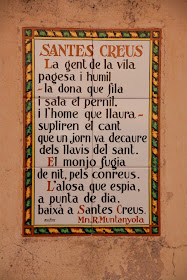 SANTES CREUS
La gent de la vila
pagesa i humil
-la dona que fila
i sala el pernil,
i l'home que llaura-
supliren el cant
que un jorn va decaure
dels llavis del sant.
El monjo fugia
de nit, pels conreus.
L'alosa que espia,
a punta de dia,
baixà a Santes Creus.
Mn. R. Muntanyola